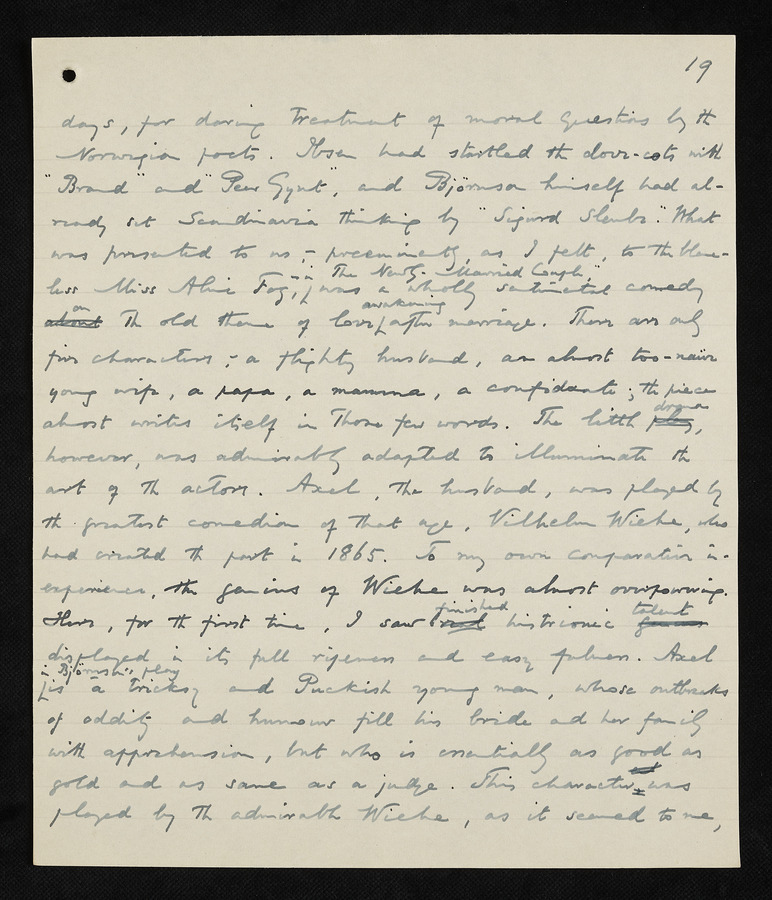 19
days, for daring treatment of moral questions by the
Norwegian poets. Ibsen had startled the dove-cots with
"Brand" and "Peer Gynt", and Björnson himself had al-
ready set Scandinavia thinking by "Sigurd Slembe". What
was presented to us, – preeminently, as I felt, to the blame-
less Miss Aline Fog, – in "The Newly-Married Couple", was a wholly sentimental comedy
about on the old theme of love awakening after marriage. There are only
five characters; – a flighty husband, an almost too-naïve
young wife, a papa, a mamma, a confidante; the piece
almost writes itself in those few words. The little play drama,
however, was admirably adapted to illuminate the
art of the actors. Axel, the husband, was played by
the greatest comedian of that age, Vilhelm Wiehe, who
had created the part in 1865. To my own comparative in-
experience, the genius of Wiehe was almost overpowering.
Here, for the first time, I saw finished histrionic genius talent
displayed in its full ripeness and easy fulness. Axel
in Björnson's play is a tricksy and Puckish young man, whose outbreaks
of oddity and humour fill his bride and her family
with apprehension, but who is essentially as good as
gold and as sane as a judge. This character was
played by the admirable Wiehe, as it seemed to me,